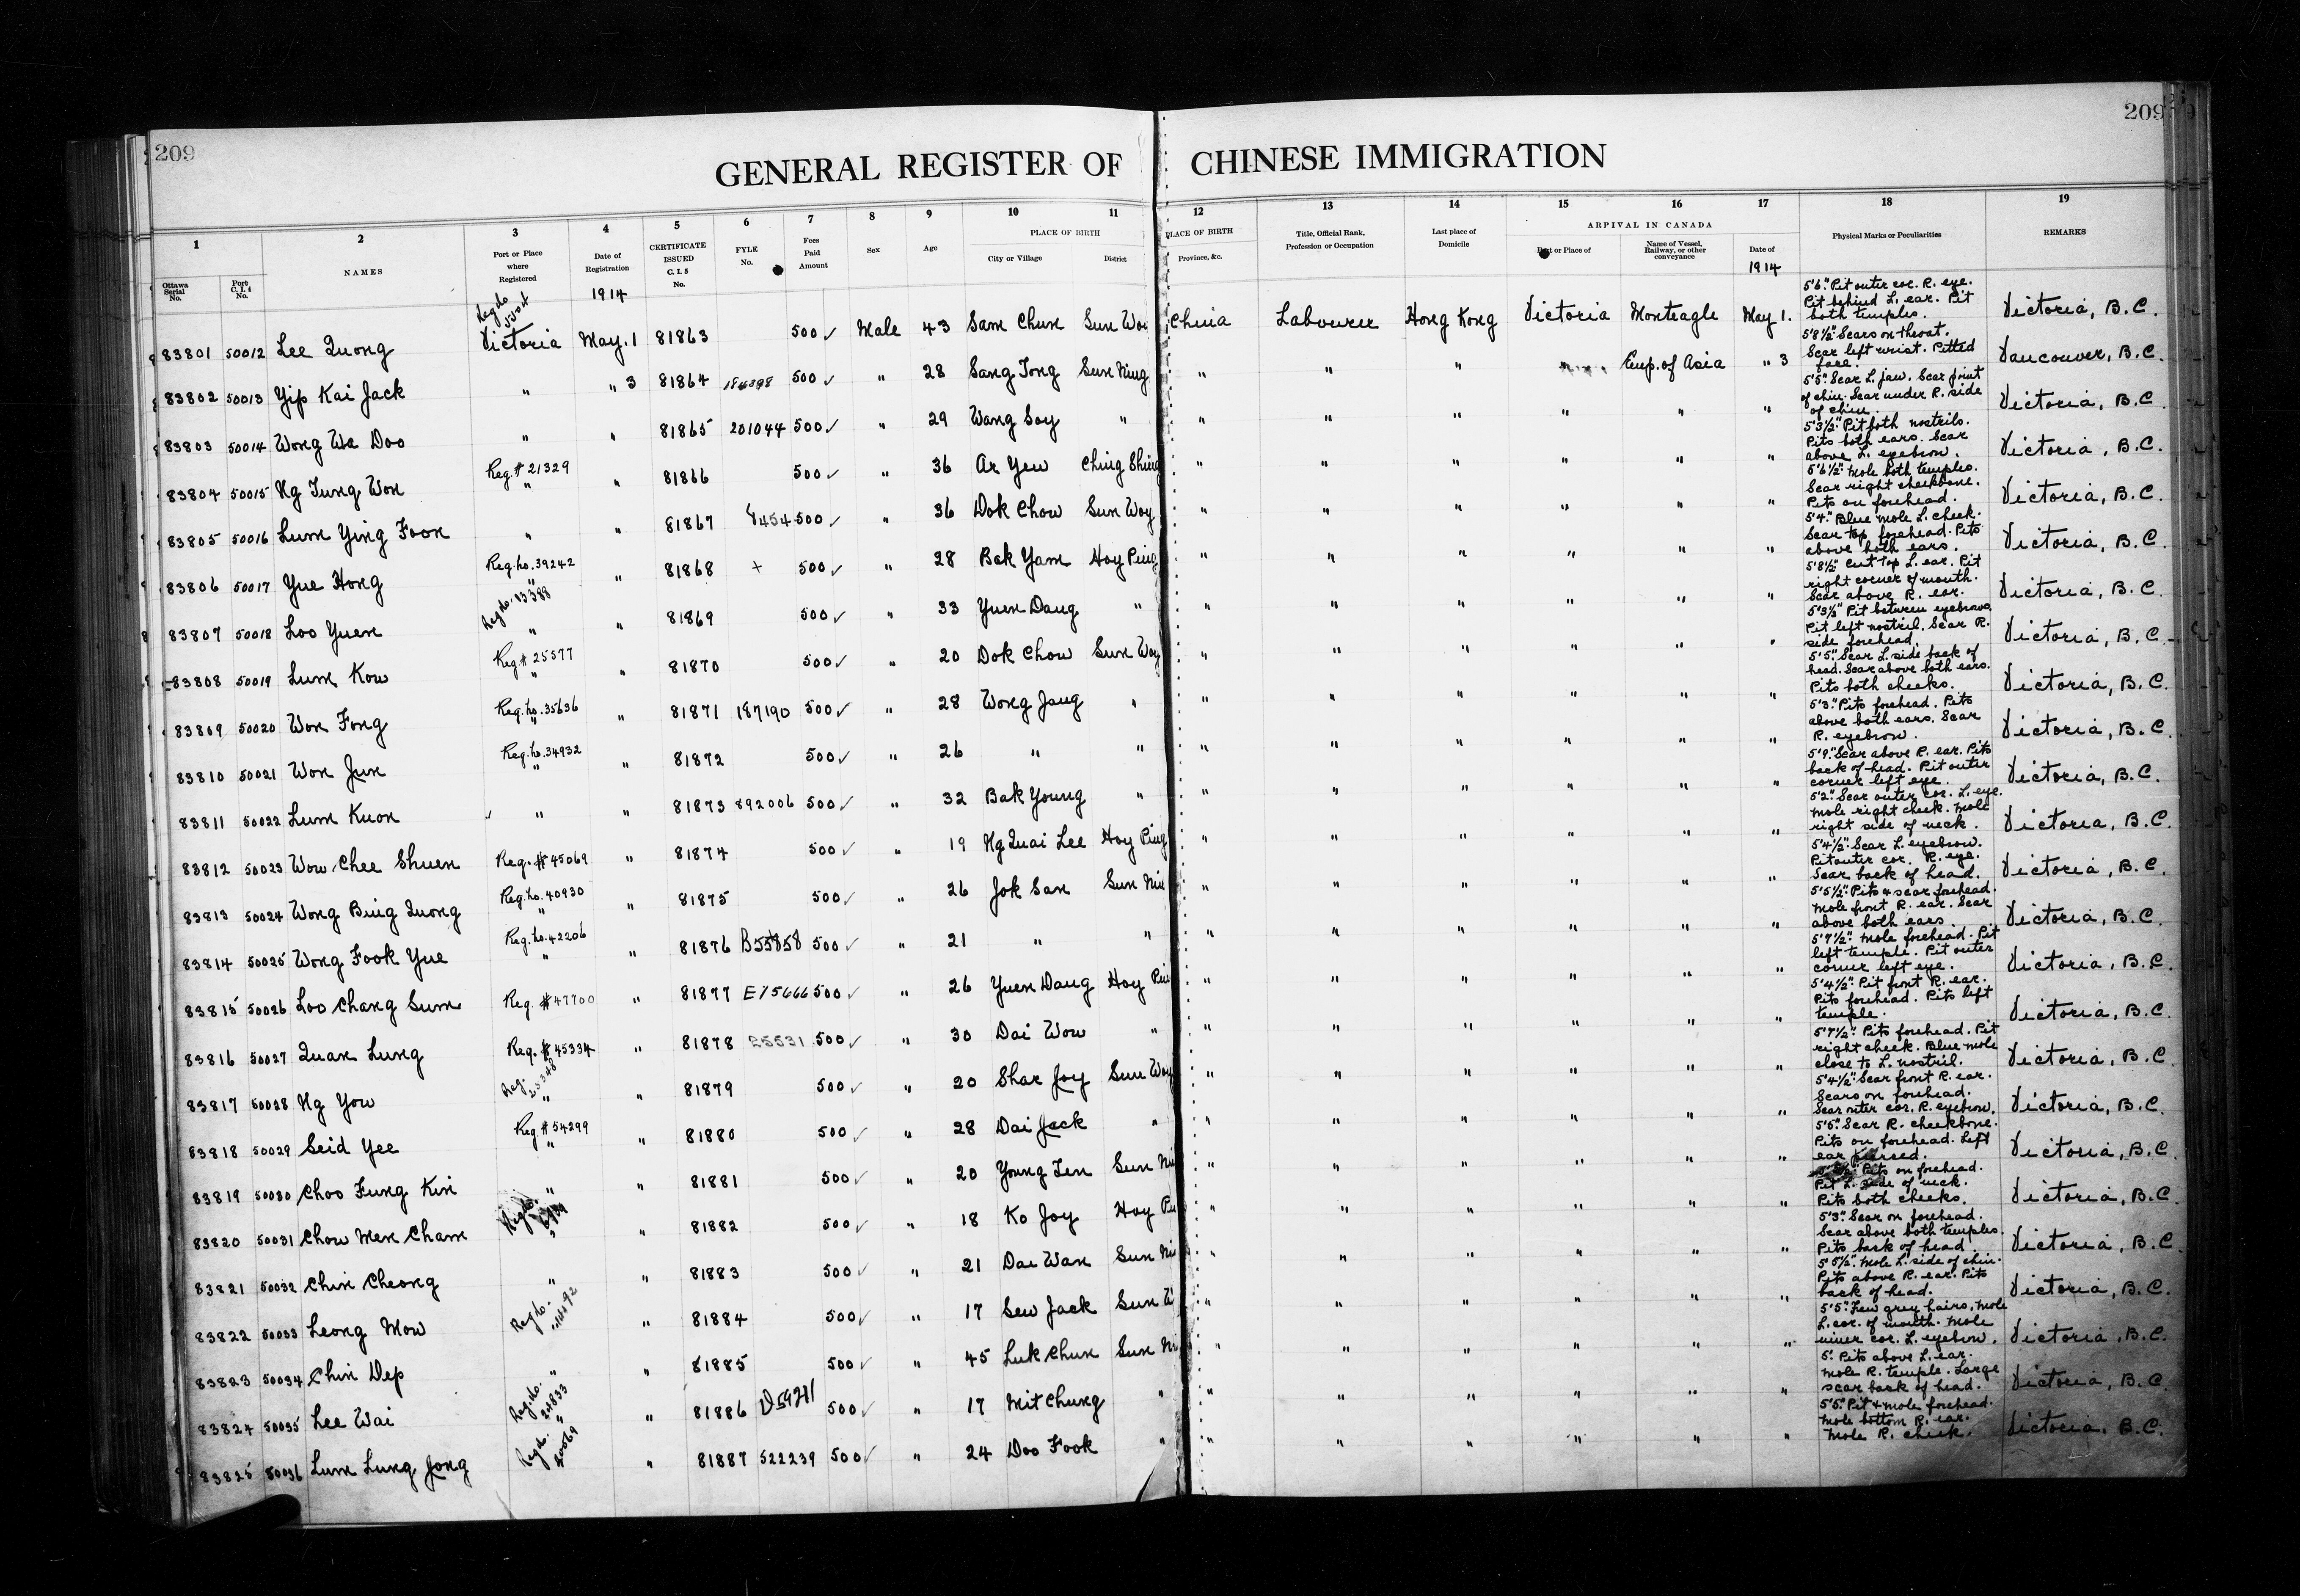 209
209
GENERAL REGISTER OF CHINESE IMMIGRATION
1 2 3 4 5 6 7 8 9 10 11 12 13 14 15 16 17 18 19
Ottawa Serial No.
Port C. I. 4 No.
NAMES
Port or Place where Registered
Date of Registration
1914
CERTIFICATE ISSUED C. I. 5 No.
FYLE No.
Fees Paid Amount
Sex
Age
PLACE OF BIRTH
City or Village
District
PLACE OF BIRTH
Province, &c.
Title, Official Rank, Profession or Occupation
Last place of Domicile
ARRIVAL IN CANADA
Port or Place of
Name of Vessel, Railway, or other conveyance
Date of
1914
Physical Marks or Peculiarities
REMARKS
83801 50012 Lee Quong Victoria May. 1 81863 500 ✓ Male 43 Sam Chun Sun Woi China Labourer Hong Kong Victoria Monteagle May 1. 5'6". Pit outer cor. R. eye. Pit behind L. ear. Pit both temples. Victoria, B.C.
83802 50013 Yip Kai Jack " " 3 81864 186398 500 ✓ " 28 Sang Tong Sun Ning " " " Emp. of Asia " 3 5'8½". Scars on throat. Scar left wrist. Pitted face. Vancouver, B.C.
83803 50014 Wong Wa Doo " " 81865 201044 500 ✓ " 29 Wang Soy " " " " " " " 5'5". Scar L. jaw. Scar point of chin. Scar under R. side of chin. Victoria, B.C.
83804 50015 Ng Tung Won Reg. # 21329 " " 81866 500 ✓ " 36 Ar Yew Ching Shing " " " " " " 5'3½". Pit both nostrils. Pits both ears. Scar above L. eyebrow. Victoria, B.C.
83805 50016 Lum Ying Foon " " 81867 8454 500 ✓ " 36 Dok Chow Sun Woy " " " " " " 5'6½". Mole both temples. Scar right cheekbone. Pits on forehead. Victoria, B.C.
83806 50017 Yue Hong Reg. No. 39242 " " 81868 + 500 ✓ " 28 Bak Yam Hoy Ping " " " " " " 5'4". Blue mole L. cheek. Scar top forehead. Pits above both ears. Victoria, B.C.
83807 50018 Loo Yuen Reg No. 13388 " " 81869 500 ✓ " 33 Yuen Dang " " " " " " " 5'8½". Cut top L. ear. Pit right corner of mouth. Scar above R. ear. Victoria, B.C.
83808 50019 Lum Kow Reg. # 25577 " " 81870 500 ✓ " 20 Dok Chow Sun Woy " " " " " " 5'3½". Pit between eyebrows. Pit left nostril. Scar R. side forehead. Victoria, B.C.
83809 50020 Won Fong Reg. No. 35636 " " 81871 187190 500 ✓ " 28 Wong Jang " " " " " " " 5'5". Scar L. side back of head. Scar above both ears. Pits both cheeks. Victoria, B.C.
83810 50021 Won Jun Reg. No. 34932 " " 81872 500 ✓ " 26 " " " " " " " " 5'3". Pits forehead. Pits above both ears. Scar R. eyebrow. Victoria, B.C.
83811 50022 Lum Kuon " " 81873 892006 500 ✓ " 32 Bak Young " " " " " " " 5'9". Scar above R. ear. Pits back of head. Pit outer corner left eye. Victoria, B.C.
83812 50023 Wow Chee Shuen Reg. # 45069 " 81874 500 ✓ " 19 Ng Quai Lee Hoy Ping " " " " " " 5'2". Scar outer cor. L. eye. Mole right cheek. Mole right side of neck. Victoria, B.C.
83813 50024 Wong Bing Quong Reg. No. 40930 " " 81875 500 ✓ " 26 Jok San Sun Nin " " " " " " 5'4½". Scar L. eyebrow. Pit outer cor. R. eye. Scar back of head. Victoria, B.C.
83814 50025 Wong Fook Yue Reg. No. 42206 " " 81876 B53858 500 ✓ " 21 " " " " " " " " 5'5½". Pits & scar forehead. Mole front R. ear. Scar above both ears. Victoria, B.C.
83815 50026 Loo Chang Sum Reg. # 47700 " 81877 E75666 500 ✓ " 26 Yuen Dang Hoy Pin " " " " " " 5'7½". Mole forehead. Pit left temple. Pit outer corner left eye. Victoria, B.C.
83816 50027 Quan Lung Reg. # 45334 " 81878 25531 500 ✓ " 30 Dai Wow " " " " " " " 5'4½". Pit front R. ear. Pits forehead. Pits left temple. Victoria, B.C.
83817 50028 Ng You Reg. 25348 " " 81879 500 ✓ " 20 Shar Joy Sun Woy " " " " " " 5'7½". Pits forehead. Pit right cheek. Blue mole close to L. nostril. Victoria, B.C.
83818 50029 Seid Yee Reg. # 54299 " " 81880 500 ✓ " 28 Dai Jack " " " " " " " 5'4½". Scar front R. ear. Scars on forehead. Scar outer cor. R. eyebrow. Victoria, B.C.
83819 50030 Choo Fung Kin " " 81881 500 ✓ " 20 Young Ten Sun Ni " " " " " " 5'5". Scar R. cheekbone. Pits on forehead. Left ear pierced. Victoria, B.C.
83820 50031 Chow Men Cham Reg. No. " " 81882 500 ✓ " 18 Ko Joy Hoy Pin " " " " " " Pits on forehead. Pit L. side of neck. Pits both cheeks. Victoria, B.C.
83821 50032 Chin Cheong " " 81883 500 ✓ " 21 Dai Wan Sun Ni " " " " " " 5'3". Scar on forehead. Scar above both temples. Pits back of head. Victoria, B.C.
83822 50033 Leong Mow Reg No. " " 81884 500 ✓ " 17 Sew Jack Sun W " " " " " " 5'5½". Mole L. side of chin. Pits above R. ear. Pits back of head. Victoria, B.C.
83823 50034 Chin Dep " " 81885 500 ✓ " 45 Luk Chun Sun Ni " " " " " " 5'5". Few grey hairs. Mole L. cor. of mouth. Mole inner cor. L. eyebrow. Victoria, B.C.
83824 50035 Lee Wai Reg. No. 24833 " " 81886 500 ✓ " 17 Mit Chung " " " " " " " 5'. Pits above L. ear. Mole R. temple. Large scar back of head. Victoria, B.C.
83825 50036 Lum Lung Jong Reg No. 20069 " " 81887 522239 500 ✓ " 24 Doo Fook " " " " " " " 5'5". Pit & mole forehead. Mole bottom R. ear. Mole R. cheek. Victoria, B.C.